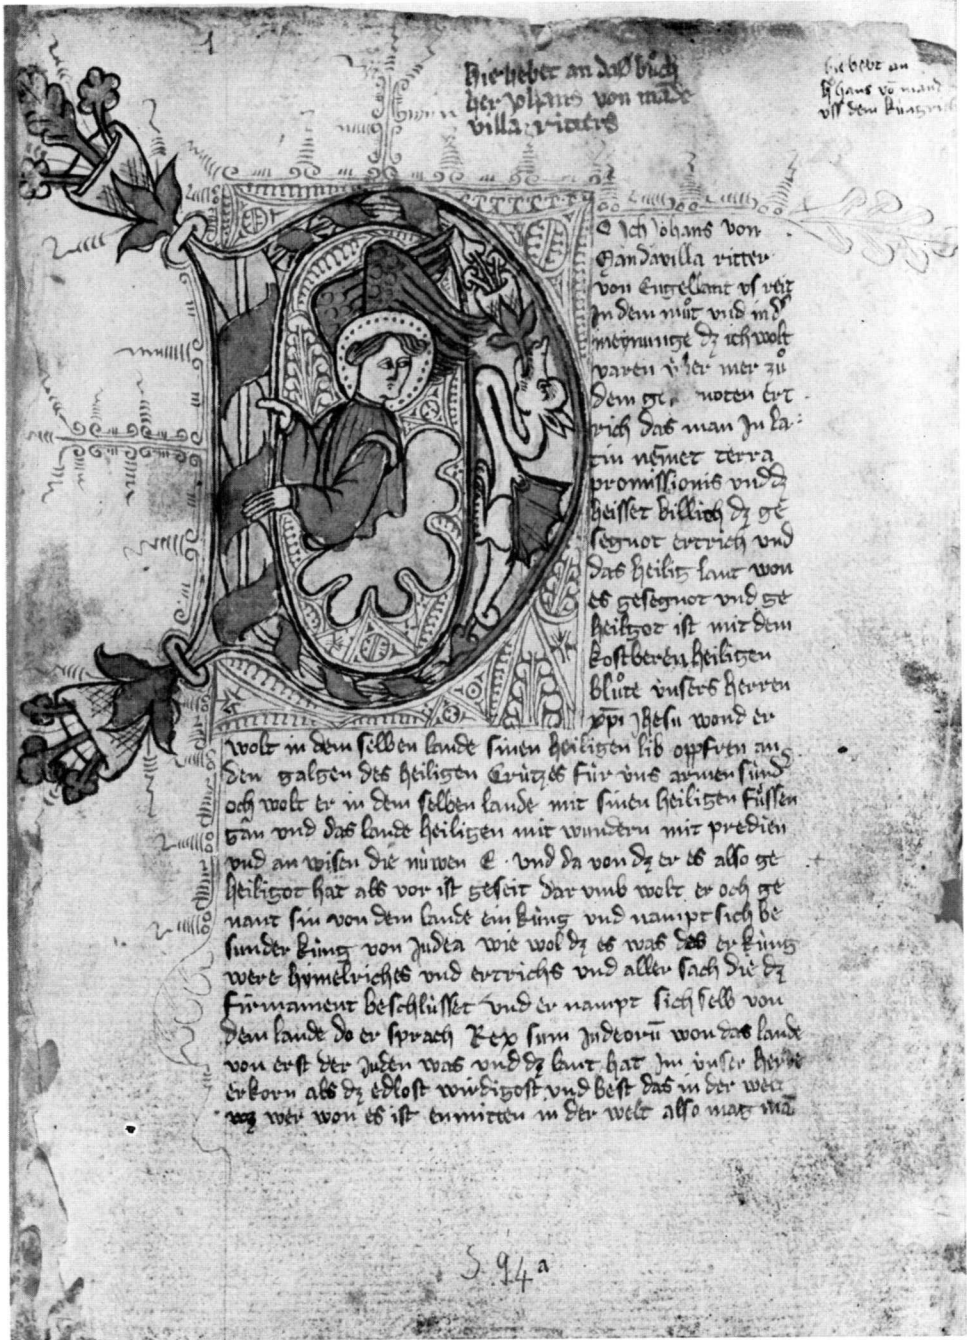 1
Hie hebet an das bůch
her Johans von mãde
villa ritters
hie hebt an
h̓ hans vō mand
vss dem kungrich
O Ich Johans von
Mandavilla ritter
von Engellant vs reit
In dem můt vnd in d̓
meynunge dz ich wolt
varen v̍ber mer zů
dem ge noten ert
rich das man In la
tin nēmet terra
promissionis vnd dz
heisset billich dz ge
segnot ertrich vnd
das heilig lant won
es gesegnot vnd ge
heilgot ist mit dem
kostberen heiligen
blůte v̍nsers herren
xp̄i Jhesu wond er
wolt in dem selben lande sinen heiligen lib opfren an
den galgen des heiligen Crützes für v̍ns armen sünd̓
och wolt er in dem selben lande mit sinen heiligen füssen
gân vnd das lande heiligen mit wundern mit predien
vnd an wisen die nüwen E · vnd da von dz er es also ge
heiligot hat als vor ist geseit dar vmb wolt er och ge
nant sin von dem lande ein küng vnd nampt sich be
sunder küng von Judea wie wol dz es was des er küng
were hymelriches vnd ertrichs vnd aller sach die dz
fürmament beschlüsset vnd er nampt sich selb von
dem lande do er sprach Rex sum Judeorū won das lande
von erst der Juden was vnd dz lant hat Im v̍nser herre
erkorn als dz edlost würdigost vnd best das in der welt
wer won es ist enmitten in der welt also mag mā
S. 94a